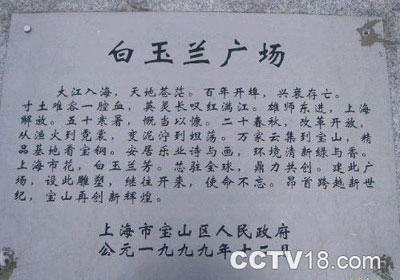 白玉兰广场
大江入海，天地苍茫。百年开埠，兴衰存亡。
寸土难容一腔血，英灵长叹红满江。雄师东进，上海
解放。五十来暑，慨当以慷。二十春秋，改革开放，
从渔火到竞豪，变泥泞到坦荡。万家云集到宝山，精
品基地看宝钢。安居乐业诗与画，环境清新绿与香。
上海市花，白玉兰芳。芯驻全球，鼎力共创。建此广
场，设此雕塑，继往开来，使命不忘。昂首跨越新世
纪，宝山再创新辉煌。
上海市宝山区人民政府
公元一九九九年十二月
CCTV18.com